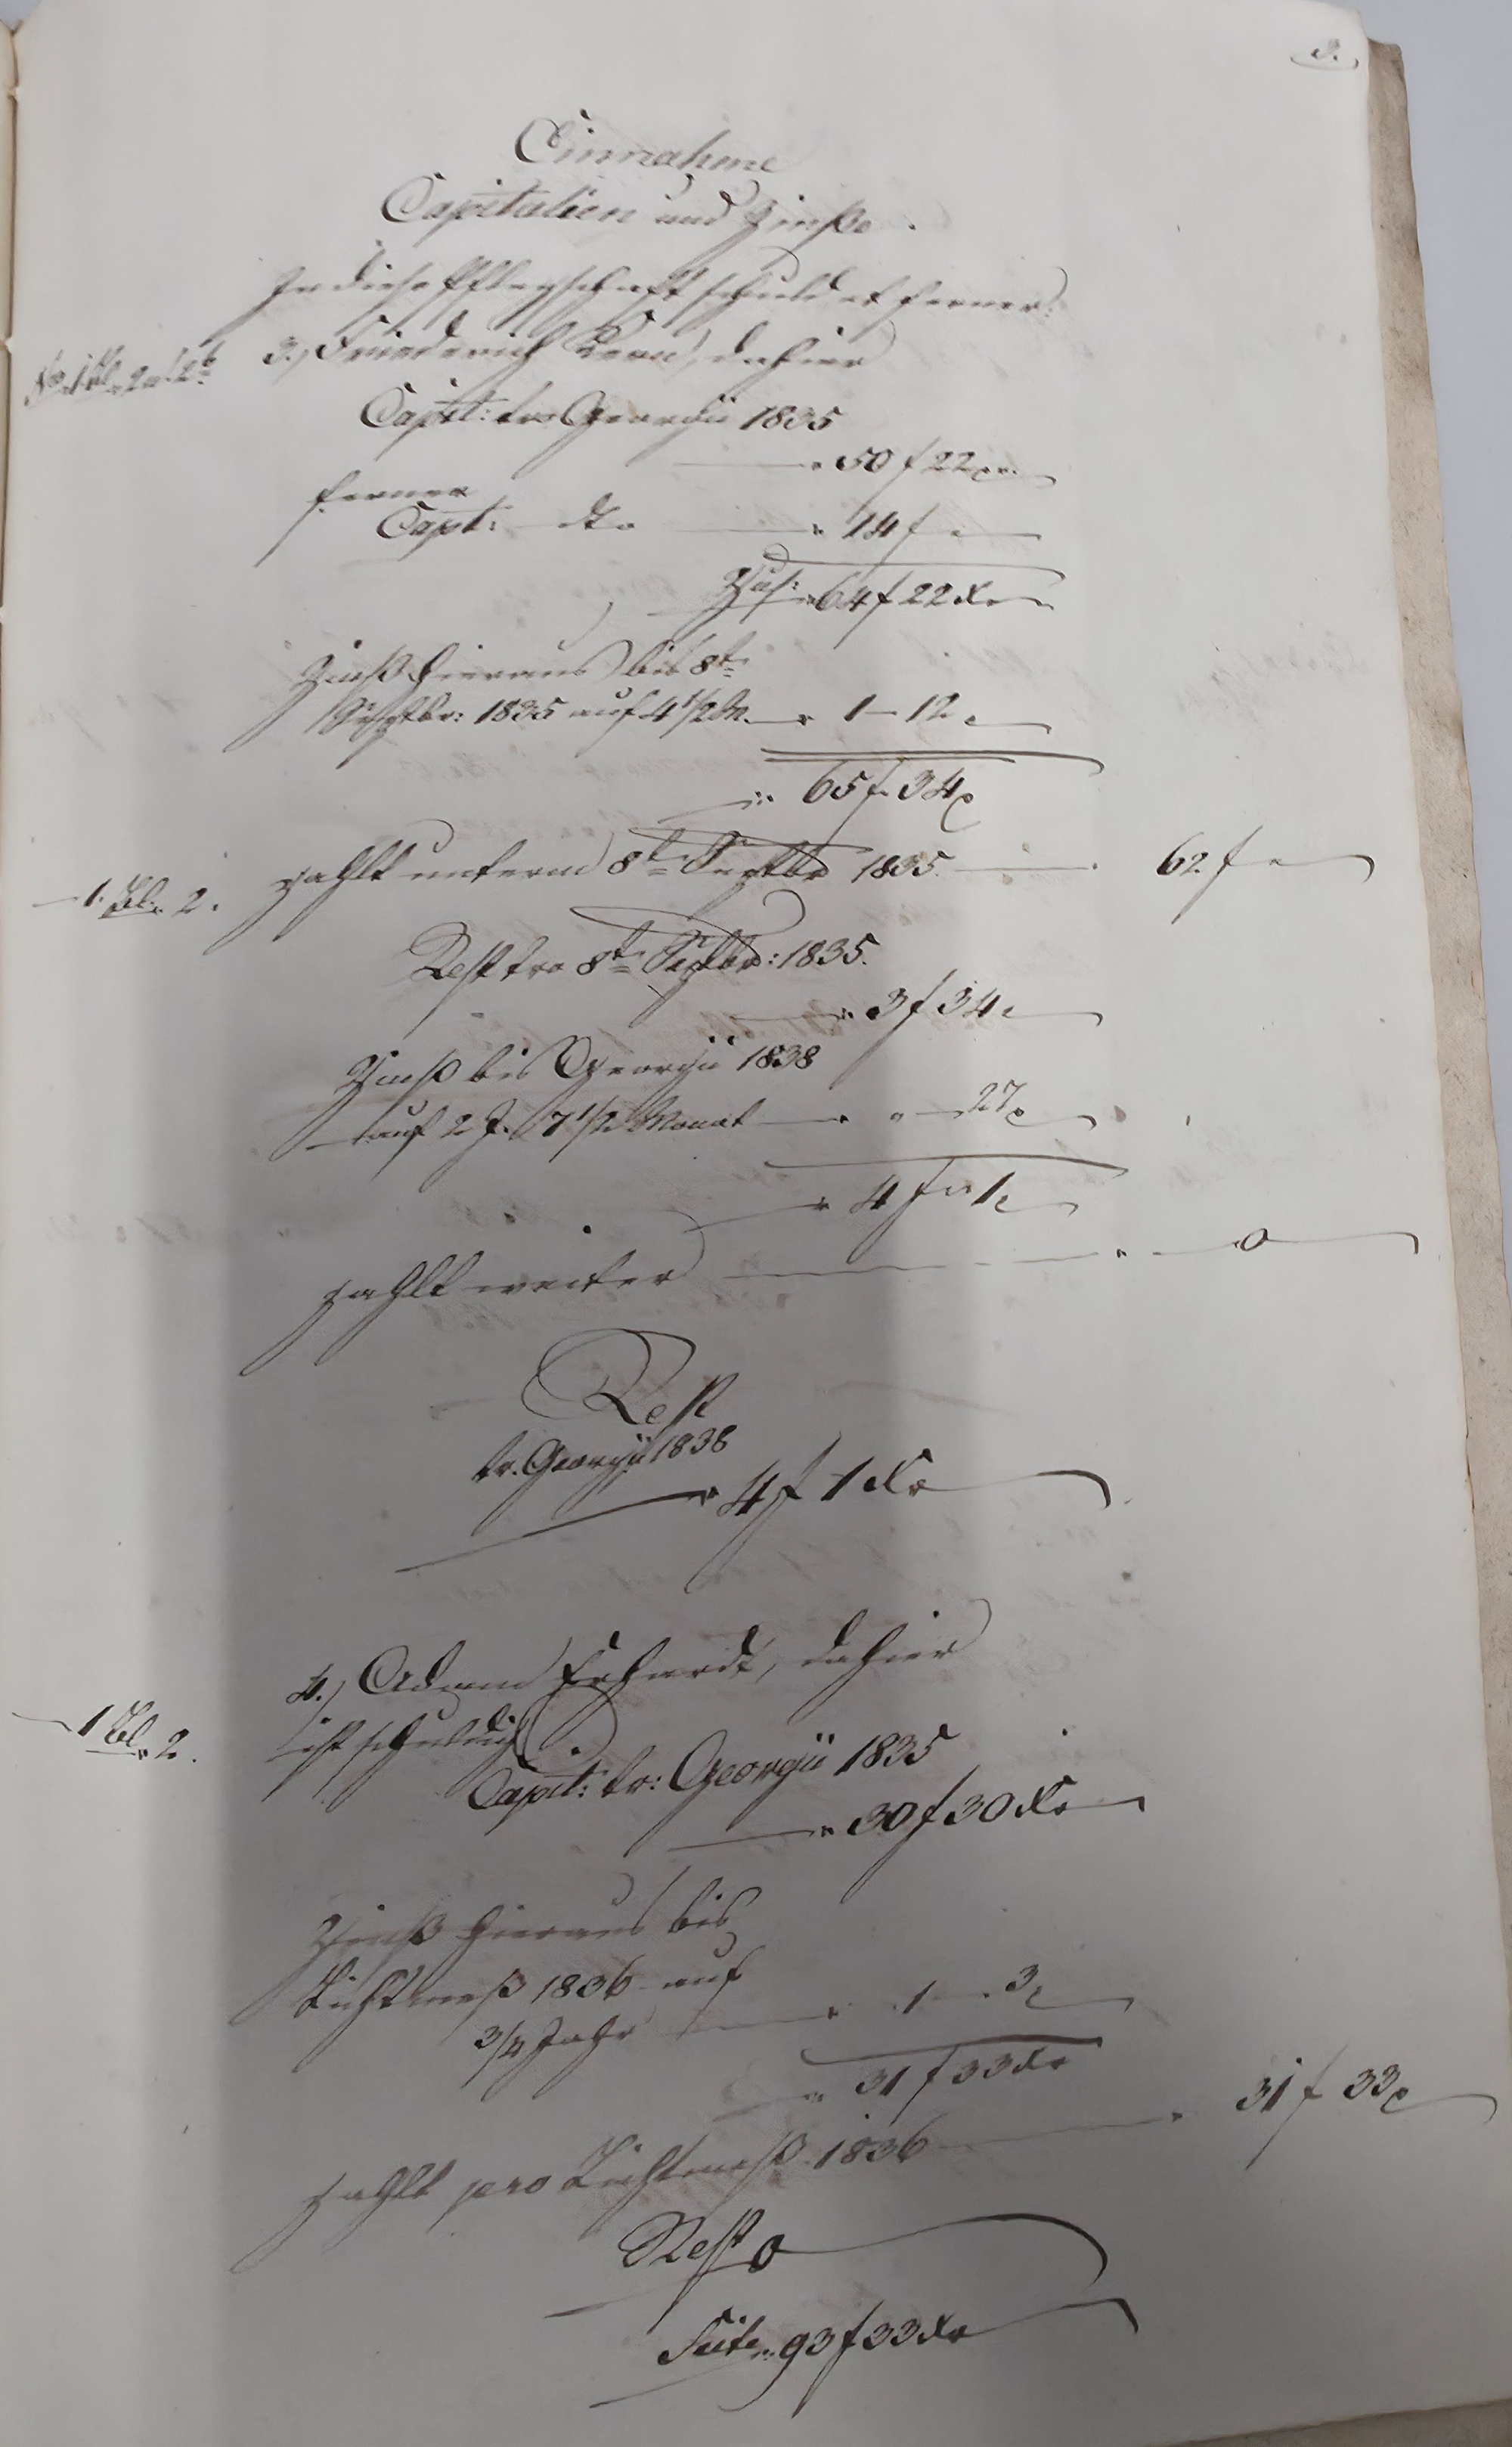 3.
Einnahme
Capitalien und Zinße.
In diese Pflegschaft schuldet ferner:
3.) Friederich, dahier
No. 1 Bl. 2 a. & 2 b
Capit: tr. Georgii 1835
" 50 f 22 xr.
ferner
Capt: dto " 14 f "
Zus: " 64 f 22 Xr
Zinß hieraus bis 8t
Septbr: 1835 auf 4 1/2 M. " 1 — 12 "
" 65 f 34 x
1. Bl. 2. zahlt unterm 8t Septbr 1835 62 f "
Rest tro 8t Septbr: 1835.
" 3 f 34 "
Zinß bis Georgii 1838
auf 2 J. 7 1/2 Monat " " — 27 x
" 4 f " 1 x
zahlt weiter " 0
Rest
tr. Georgii 1838
" 4 f 1 Xr
4.) Adam Erhardt, dahier
1 Bl. 2. ist schuldig
Capit: tr: Georgii 1835
" 30 f 30 Xr
Zinß hieraus bis
Lichtmeß 1836 auf
3/4 Jahr " 1 — 3 x
" 31 f 33 Xr
zahlt pro Lichtmeß 1836 " 31 f 33 x
Rest 0
Seite " 93 f 33 Xr